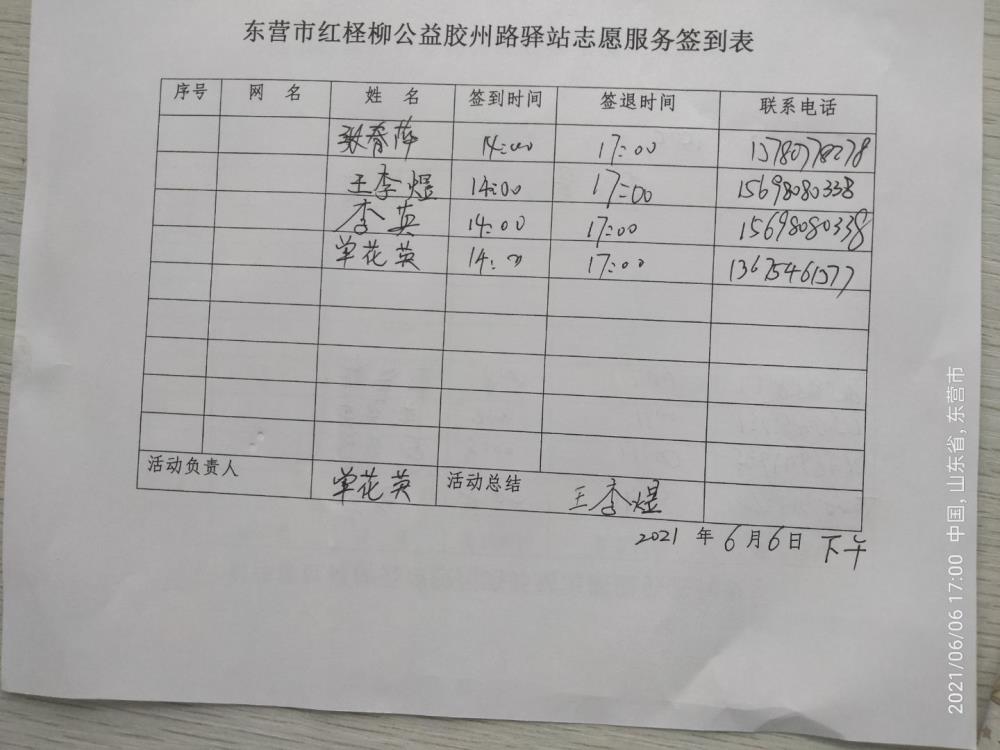 东营市红柽柳公益胶州路驿站志愿服务签到表
序号 网 名 姓 名 签到时间 签退时间 联系电话
张春萍 14:00 17:00
王李煜 14:00 17:00 15698080338
李英 14:00 17:00 15698080338
单花英 14:00 17:00 13675461577
活动负责人 单花英 活动总结 王李煜
2021 年 6 月 6 日 下午
2021/06/06 17:00 中国, 山东省, 东营市